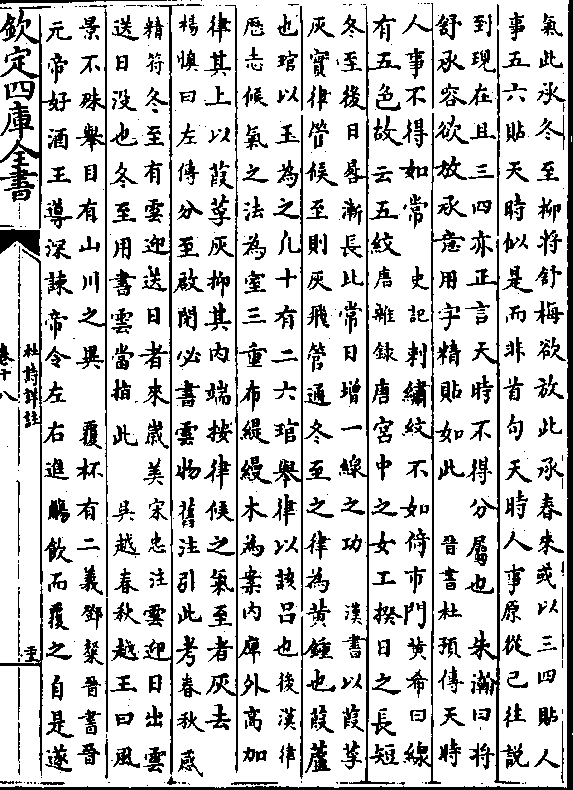 氣此承冬至柳將舒梅欲放此承春來或以三四貼人
事五六貼天時似是而非首句天時人事原從已往説
到現在且三四亦正言天時不得分屬也　朱瀚曰將
舒承容欲放承意用字精貼如此　晉書杜預傳天時
人事不得如常　史記刺繡紋不如倚市門黄希曰線
有五色故云五紋唐雜錄唐宫中之女工揆日之長短
冬至後日晷漸長比常日增一線之功　漢書以葭莩
灰實律管候至則灰飛管通冬至之律為黄鍾也葭蘆
也琯以玉為之凡十有二六琯舉律以該吕也後漢律
厯志候氣之法為室三重布緹縵木為案内庳外高加
律其上以葭莩灰抑其内端按律候之氣至者灰去
楊慎曰左傳分至啟閉必書雲物舊注引此考春秋感
精符冬至有雲迎送日者來嵗美宋忠注雲迎日出雲
送日沒也冬至用書雲當指此　吳越春秋越王曰風
景不殊舉目有山川之異　覆杯有二義鄧粲晉書晉
元帝好酒王導深諫帝令左右進觴飲而覆之自是遂
欽定四庫全書
杜詩詳註
卷十八